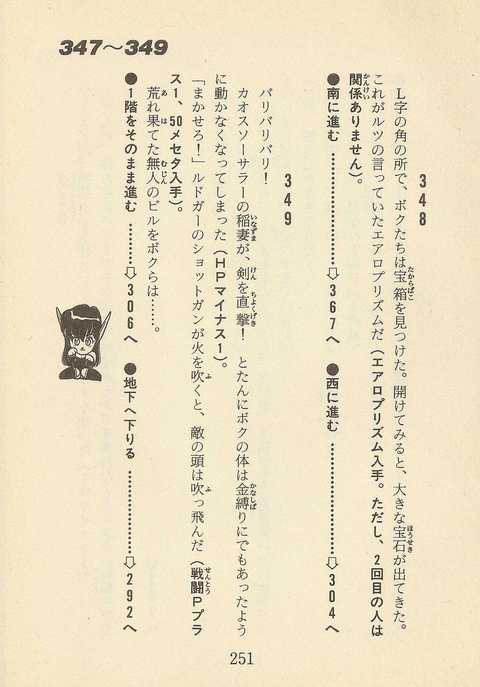 347～349
348
L字の角の所で、ボクたちは宝箱を見つけた。開けてみると、大きな宝石が出てきた。
これがルツの言っていたエアロプリズムだ（エアロプリズム入手。ただし、2回目の人は
関係ありません）。
●南に進む…………⇨367へ ●西に進む…………⇨304へ
349
バリバリバリ！
カオスソーサラーの稲妻が、剣を直撃！ とたんにボクの体は金縛りにでもあったよう
に動かなくなってしまった（HPマイナス1）。
「まかせろ！」ルドガーのショットガンが火を吹くと、敵の頭は吹っ飛んだ（戦闘Pプラ
ス1、50メセタ入手）。
荒れ果てた無人のビルをボクらは……。
●1階をそのまま進む…………⇨306へ ●地下へ下りる…………⇨292へ
251